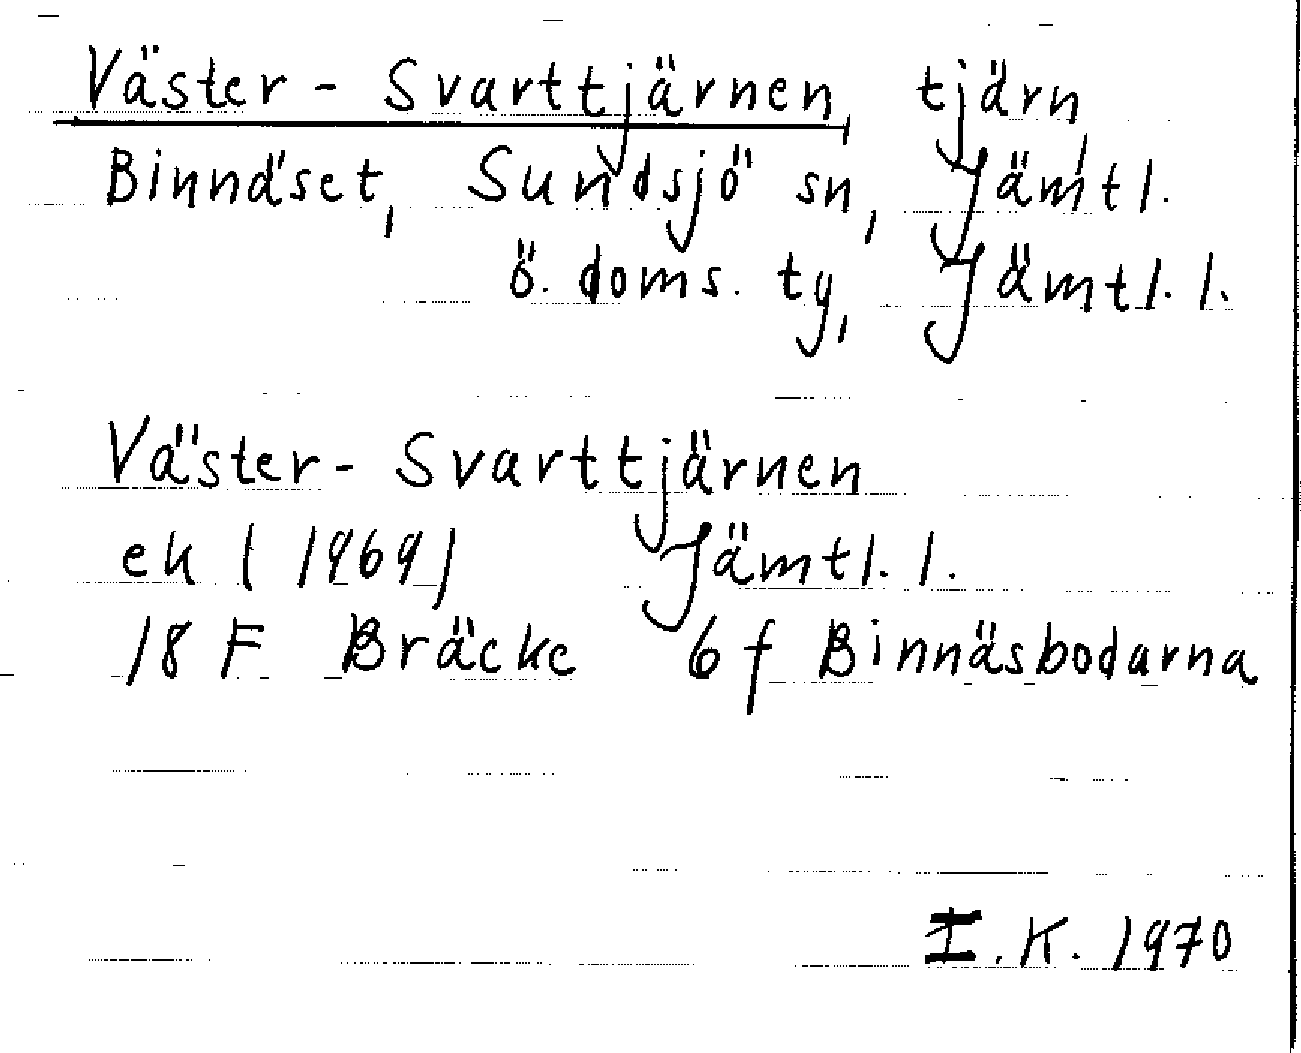 Väster-Svarttjärnen, tjärn,
Binnäset, Sundsjö sn, Jämtl.
ö. doms. tg, Jämtl. l.
Väster-Svarttjärnen
ek (1969) Jämtl. l.
18 F Bräcke 6 f Binnäsbodarna
I.K. 1970